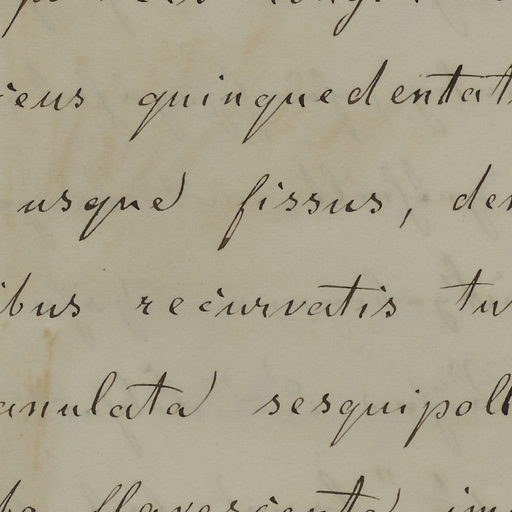 ieus quinquedentat
usque fissus, den
ibus recurvatis tu
anulata sesquipoll
flavescente im